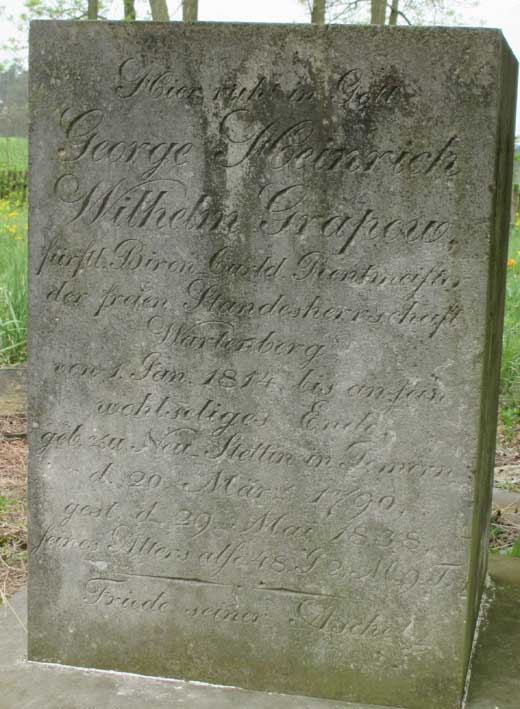 Hier ruht in Gott
George Heinrich
Wilhelm Grapow,
fürstl. Biron Curld Rentmeister
der freien Standesherrschaft
Wartenberg
von 1. Jan. 1814 bis an sein
wohlseliges Ende,
geb. zu Neu-Stettin in Pomern
d. 20. Mär 1790,
gest. d. 29. Mai 1838,
seines Alters also 48 J. 2 M. 9 T.
Friede seiner Asche